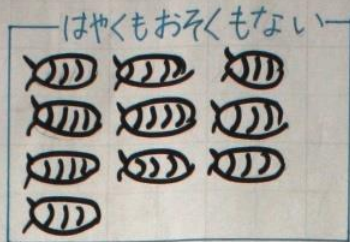 はやくもおそくもない